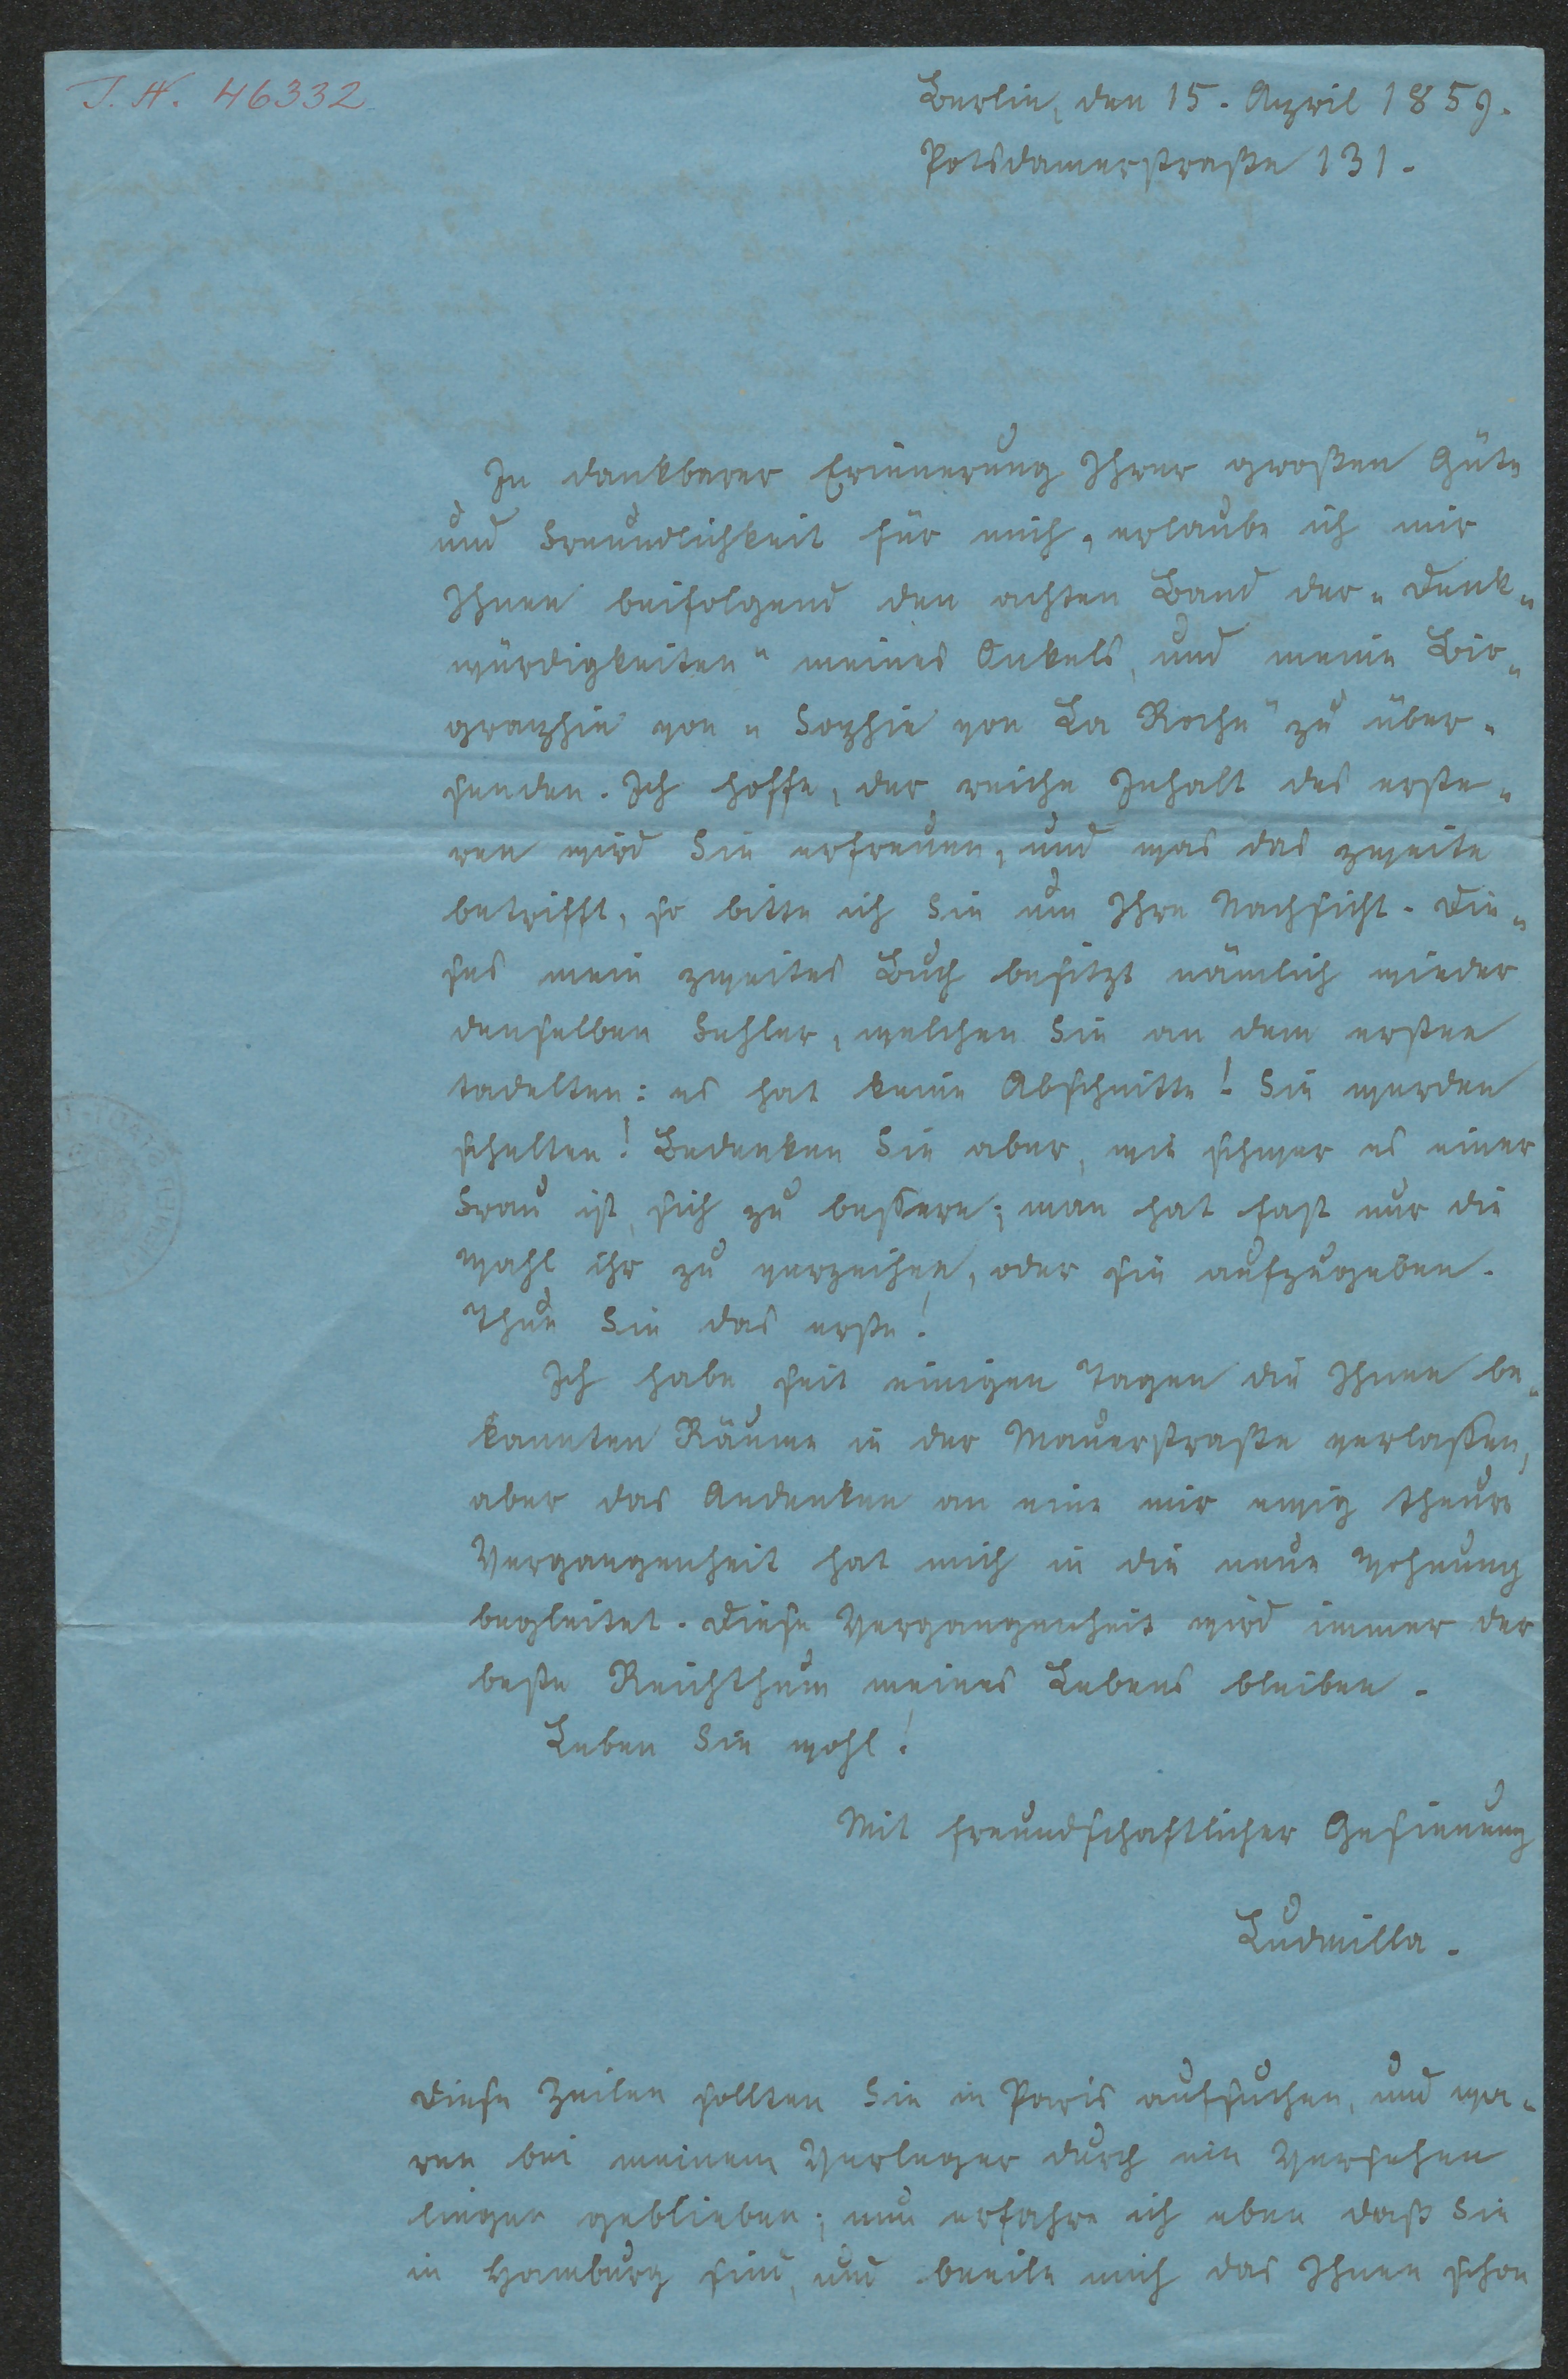 J. N. 46332
Berlin, den 15. April 1859.
Potsdamerstraße 131.
In dankbarer Erinnerung Ihrer großen Güte
und Freundlichkeit für mich, erlaube ich mir
Ihnen beifolgend den achten Band der „Denk-
würdigkeiten“ meines Onkels, und meine Bio-
graphie von „Sophie von La Roche“ zu über-
senden. Ich hoffe, der reiche Inhalt des erste-
ren wird Sie erfreuen, und was das zweite
betrifft, so bitte ich Sie um Ihre Nachsicht. Die-
ses mein zweites Buch besitzt nämlich wieder
denselben Fehler, welchen Sie an dem ersten
tadelten: es hat keine Abschnitte! Sie werden
schelten! Bedenken Sie aber, wie schwer es einer
Frau ist, sich zu bessern; man hat fast nur die
Wahl ihr zu verzeihen, oder sie aufzugeben.
Thun Sie das erste!
Ich habe seit einigen Tagen die Ihnen be-
kannten Räume in der Mauerstraße verlassen,
aber das Andenken an eine mir ewig theure
Vergangenheit hat mich in die neue Wohnung
begleitet. Diese Vergangenheit wird immer der
beste Reichthum meines Lebens bleiben.
Leben Sie wohl!
Mit freundschaftlicher Gesinnung
Ludmilla.
Diese Zeilen sollten Sie in Paris aufsuchen, und wa-
ren bei meinem Verleger durch ein Versehen
liegen geblieben; nun erfahre ich eben daß Sie
in Hamburg sind, und beeile mich das Ihnen schon